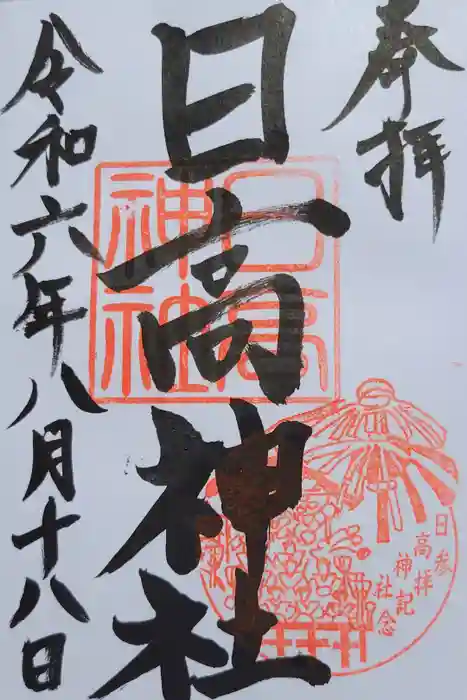 奉拝
日高神社
令和六年八月十八日
日高
神社
日高神社
参拝記念